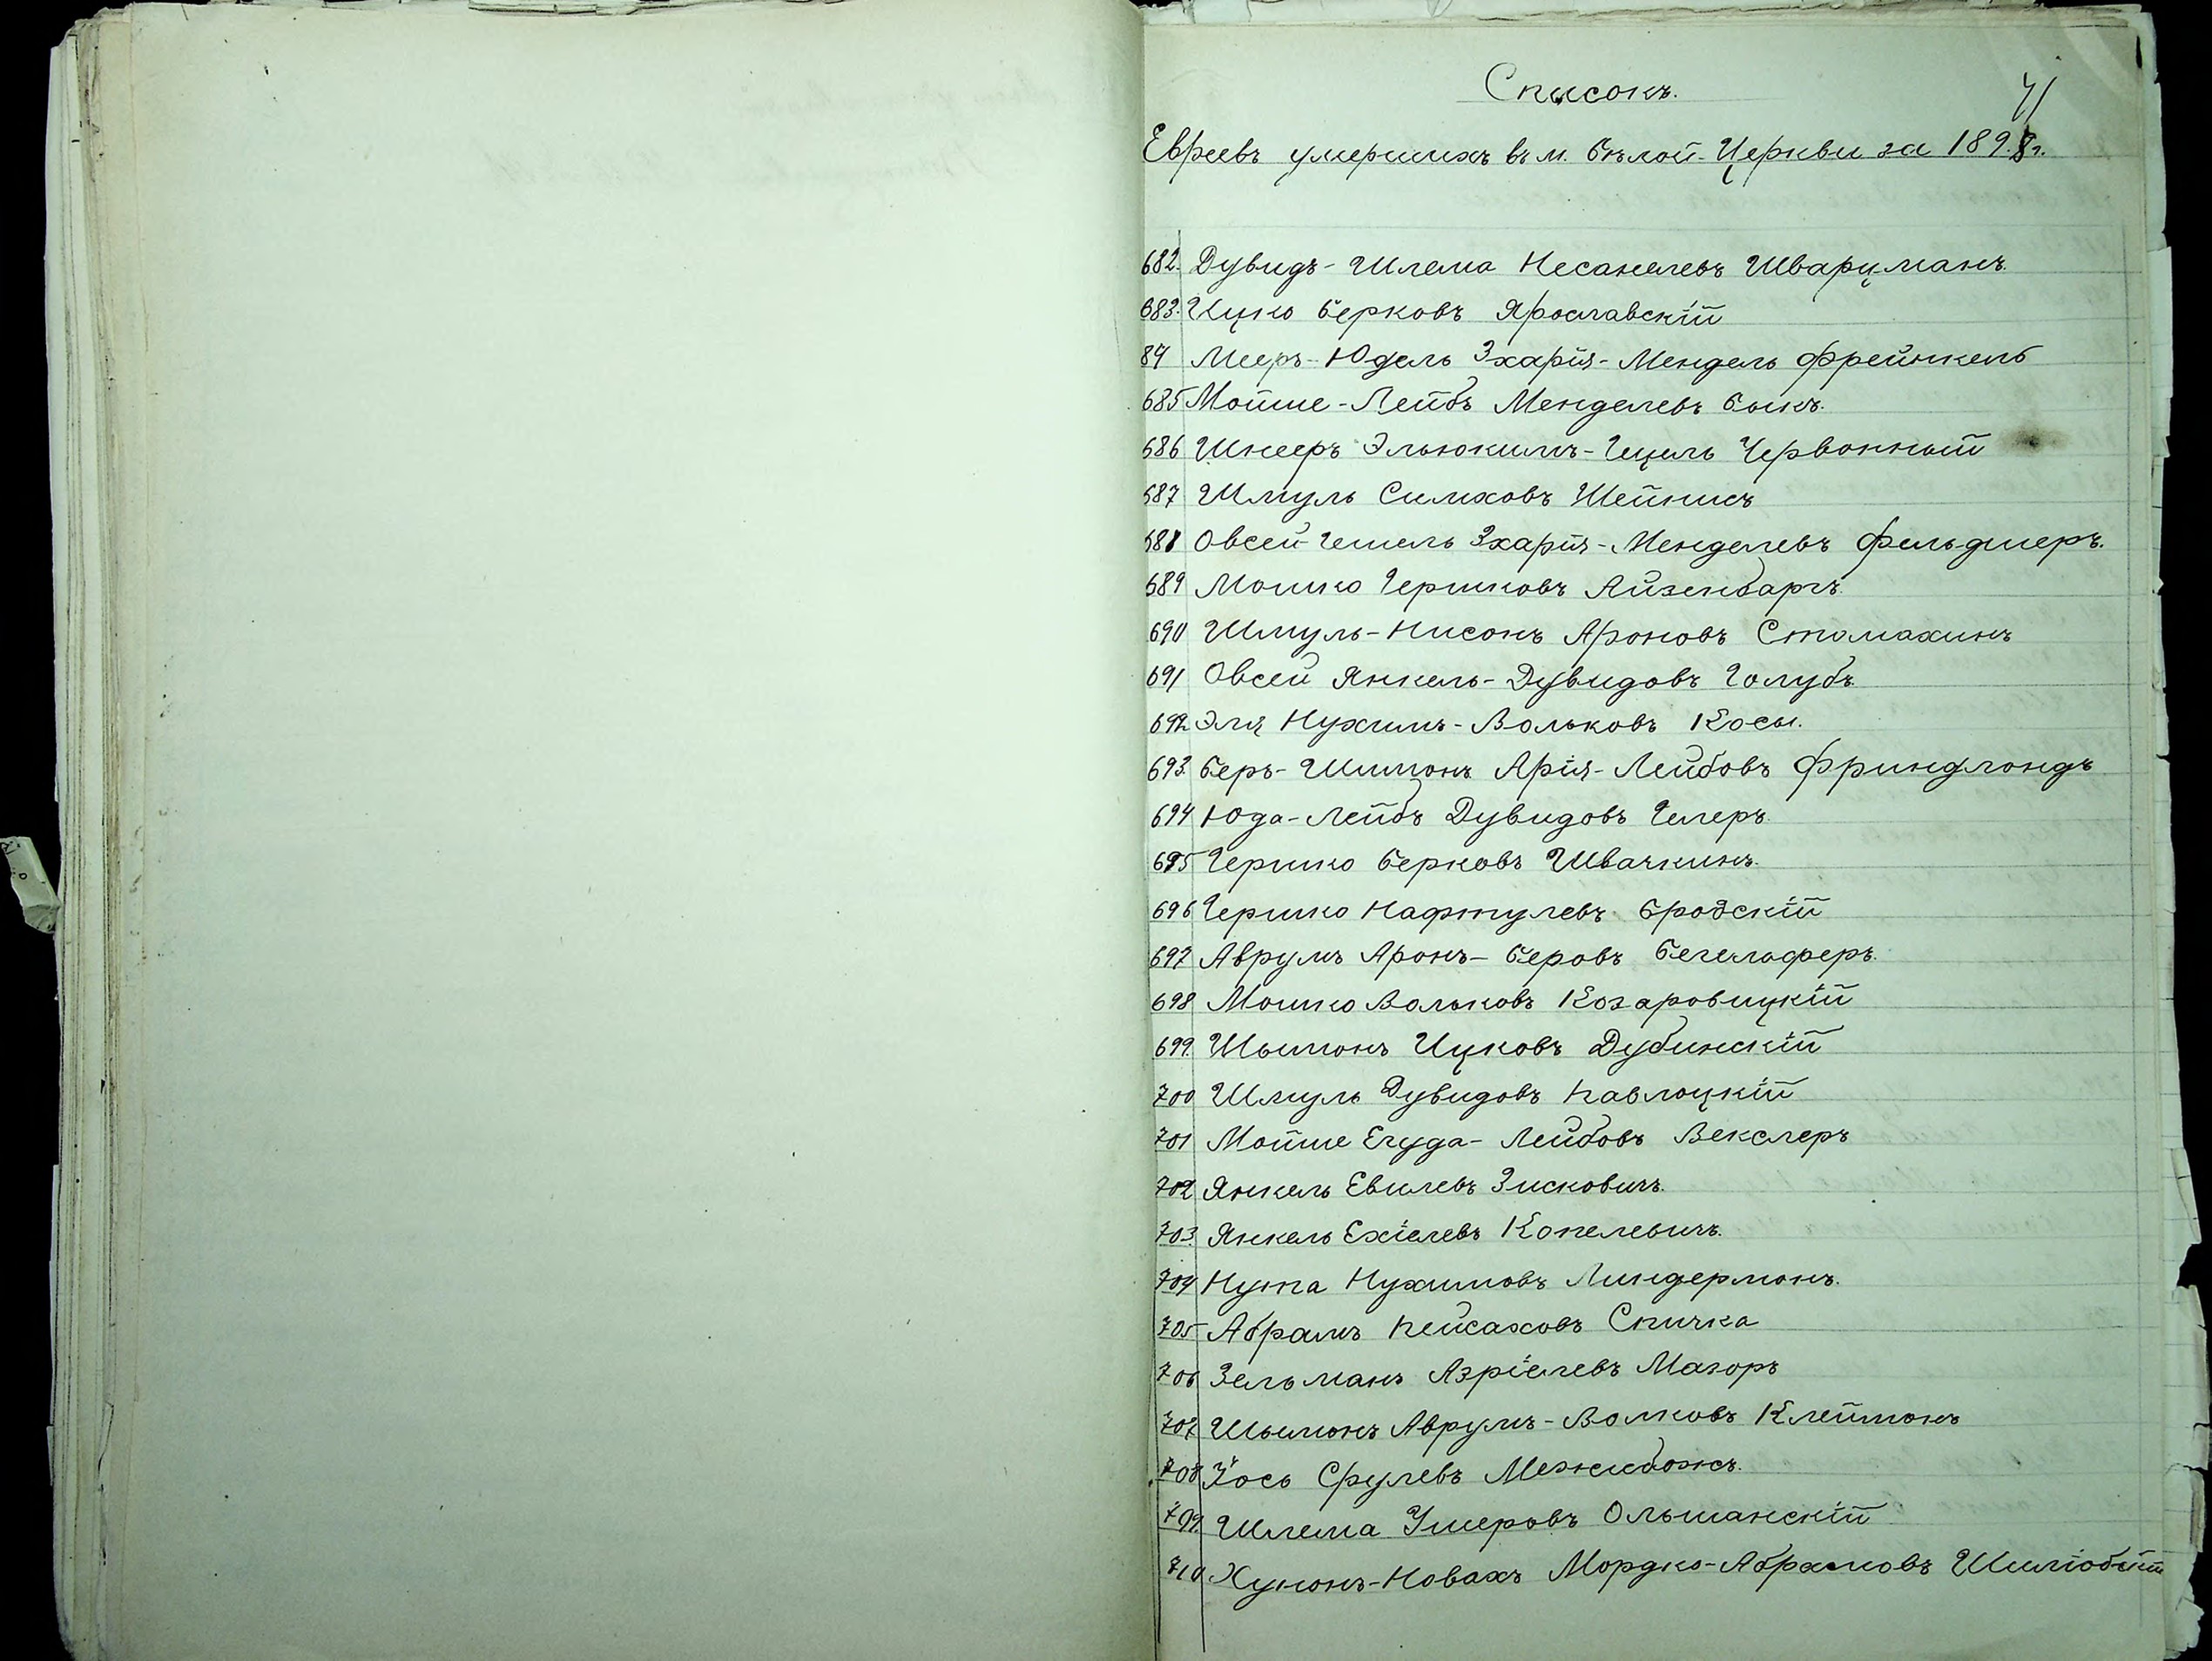 Списокъ.
71
Евреевъ умершихъ въ м. Бѣлой-Церкви за 1898 г.
682. Дувидъ-Шлема Несанелевъ Шварцманъ.
683. Ицко Берковъ Ярославскій
84 Мееръ-Юдель Зхарія-Мендель Френкель
685 Мойше-Лейбъ Менделевъ Быкъ.
686 Шнееръ Эльюкимъ-Гецель Червонный
687 Шмуль Симховъ Шейнисъ
688 Овсей-Гешель Зхарія-Менделевъ Фельдшеръ.
689 Мошко Гершковъ Айзенбаргъ.
690 Шмуль-Нисонъ Ароновъ Стамахинъ
691 Овсей Янкель-Дувидовъ Голубъ.
692 Эля Нухимъ-Вольковъ Косы.
693. Беръ-Шимонъ Арія-Лейбовъ Фриндландъ
694 Юда-Лейбъ Дувидовъ Гелеръ.
695 Гершко Берковъ Швачкинъ.
696 Гершко Нафтулевъ Бродскій
697 Аврумъ Аронъ-Беровъ Бегелаферъ.
698 Мошко Вольковъ Козаровицкій
699. Шымонъ Ицковъ Дубинскій
700 Шмуль Дувидовъ Павлоцкій
701 Мойше Егуда-Лейбовъ Векслеръ
702 Янкель Евилевъ Зисковичъ.
703. Янкель Ехіелевъ Копелевичъ.
704 Нута Нухимовъ Линдерманъ.
705 Абрамъ Пейсаховъ Спичка
706 Зельманъ Азріелевъ Мазоръ
707 Шымонъ Аврумъ-Волковъ Клейманъ
708 Іось Срулевъ Межибожъ.
709. Шлема Умеровъ Ольшанскій
710 Хунонъ-Новахъ Мордко-Абрамовъ